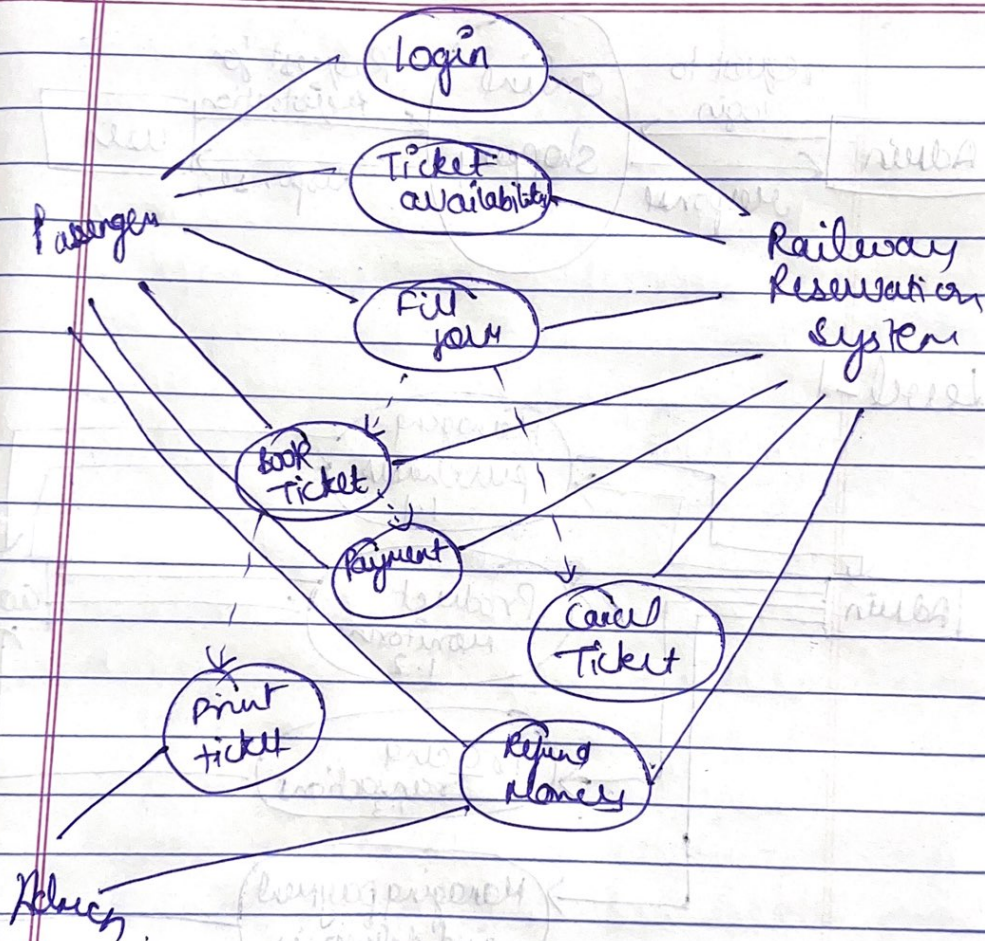 Login
Ticket
availability
Passenger
Railway
Reservation
System
Fill
form
Book
Ticket
Payment
Cancel
Ticket
Print
ticket
Refund
Money
Admin